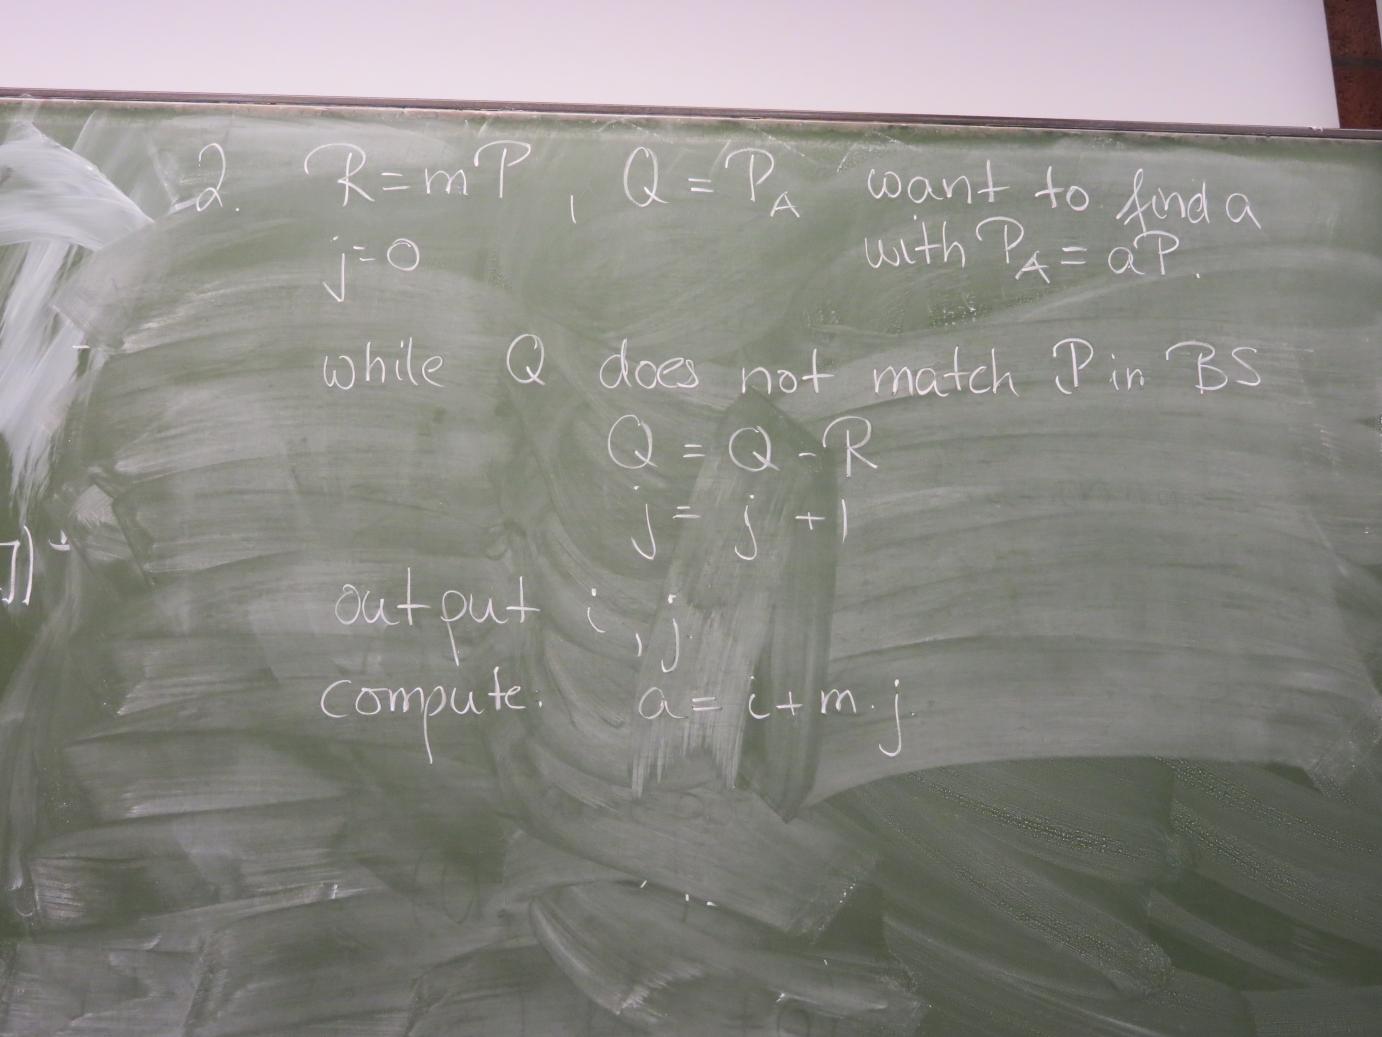 2. R=mP, Q=P_A want to find a
j=0 with P_A=aP.
while Q does not match P in BS
Q = Q - R
j = j + 1
output i, j.
compute: a = i + m · j.